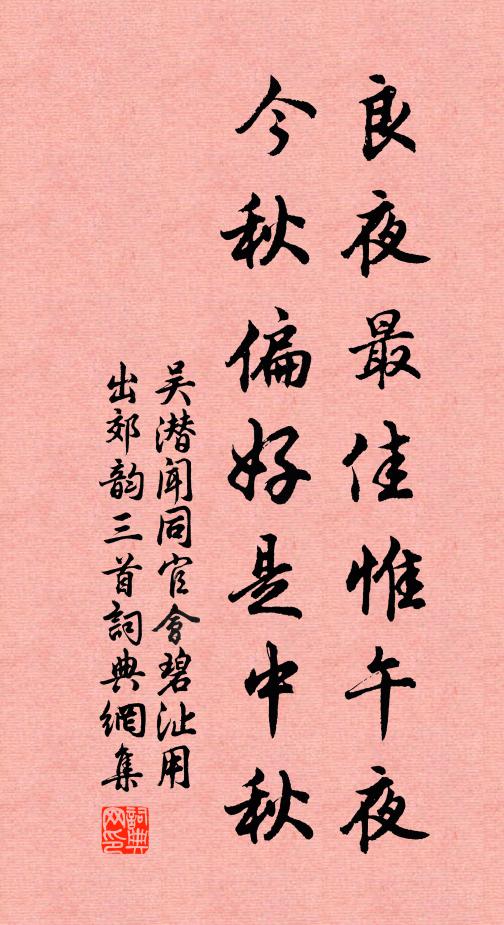 良夜最佳惟午夜
今秋偏好是中秋
吴潜闻同官会碧沚用
出郊韵三首詞典網集
詞典网印